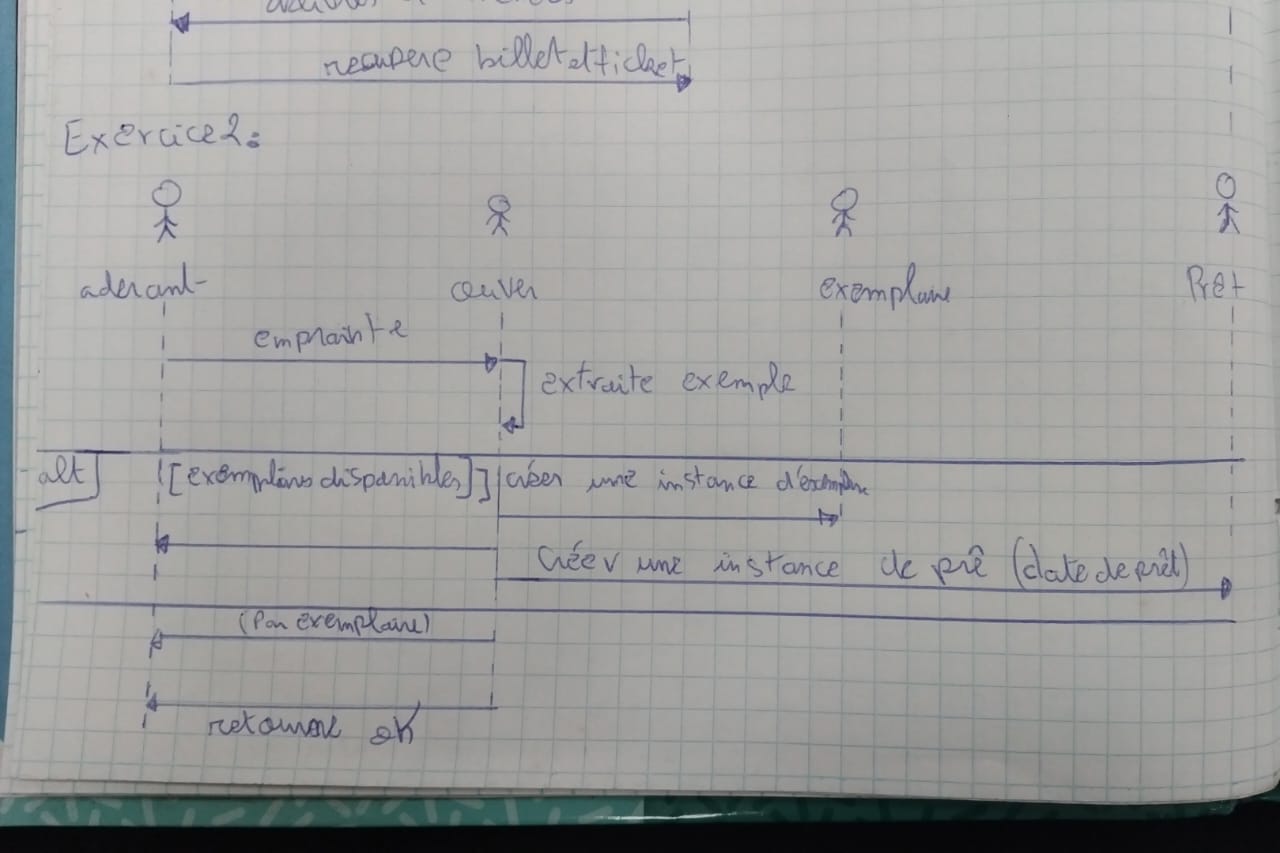 recupere billet et ticket
Exercice 2:
aderant
ouver
exemplaire
Prêt
emprainte
extraite exemple
alt
[exemplaires disponibles]
créer une instance d'exemplaire
Créer une instance de prê (date de prêt)
(Pan exemplaire)
retourne ok